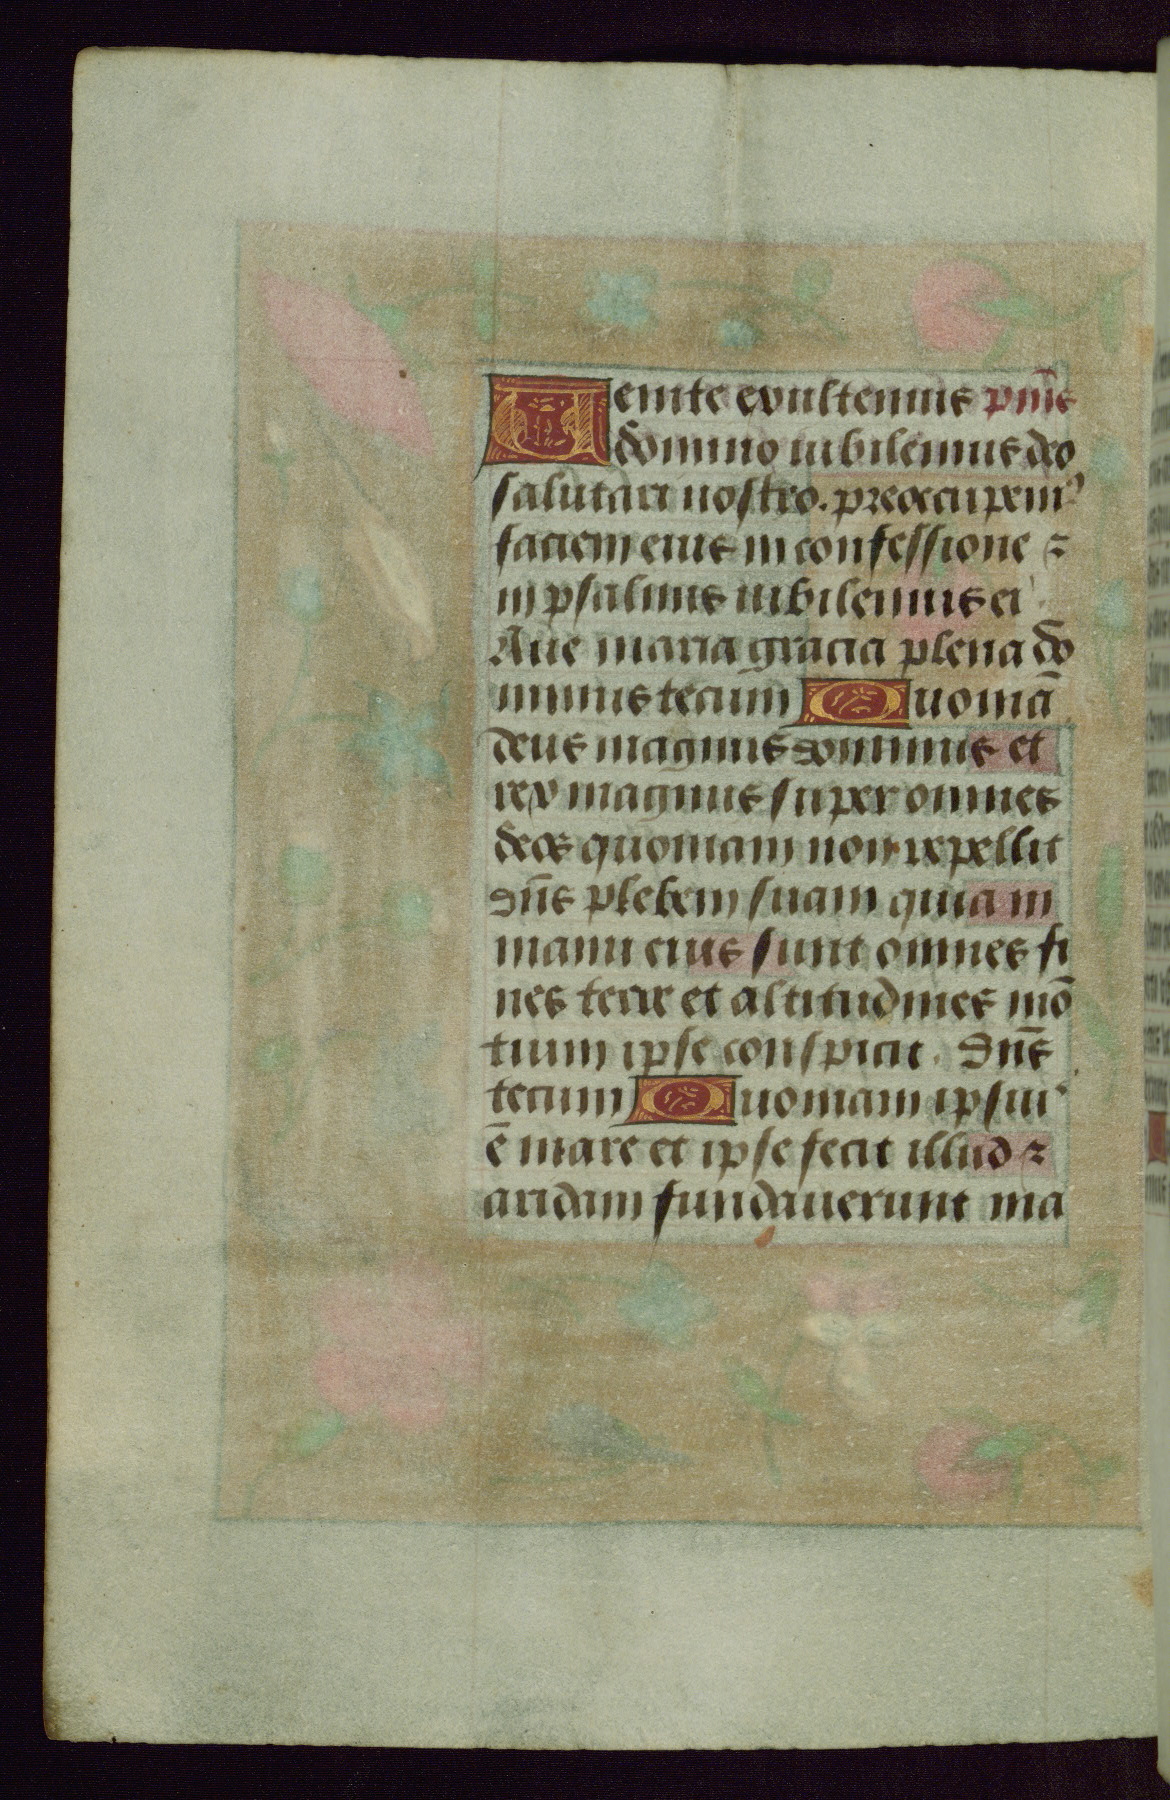 Uenite exultemus psm̃s
domino iubilemus deo
salutari nostro. preoccupemꝰ
faciem eius in confessione ⁊
in psalmis iubilemus ei
Aue maria gracia plena do
minus tecum Quoniā
deus magnus dominus et
rex magnus super omnes
deos quoniam non repellit
dñs plebem suam quia in
manu eius sunt omnes fi
nes terre et altitudines mō
tium ipse conspicit. Dñs
tecum Quoniam ipsiuꝰ
ē mare et ipse fecit illud ⁊
aridam fundauerunt ma